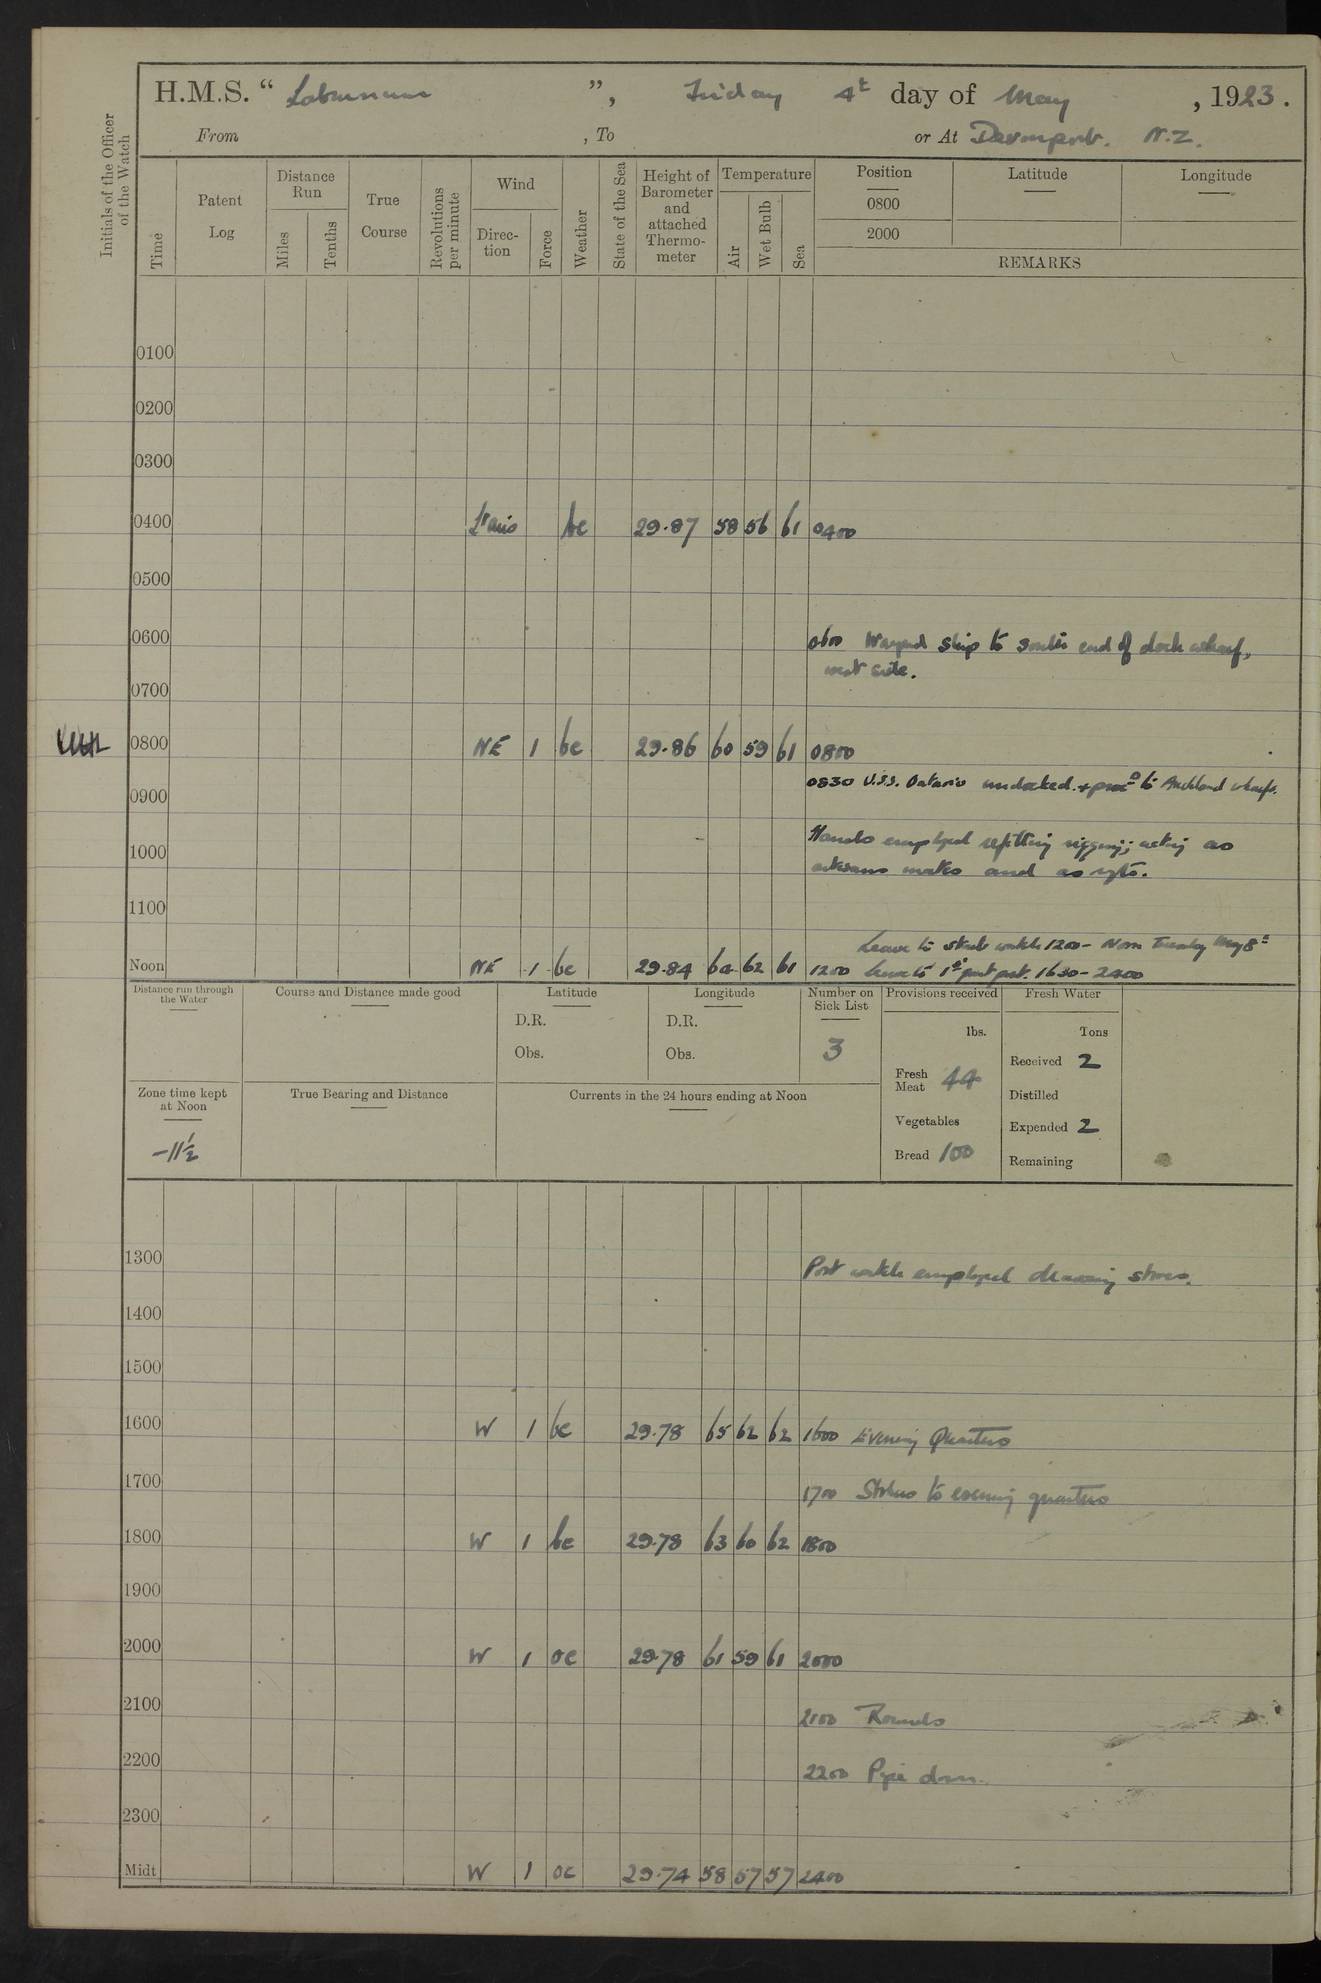 H.M.S. “ Laburnum ”, Friday 4t day of May , 1923.
From , To or At Devonport. N.Z.
Initials of the Officer of the Watch
Time
Patent Log
Distance Run
Miles
Tenths
True Course
Revolutions per minute
Wind
Direc- tion
Force
Weather
State of the Sea
Height of Barometer and attached Thermo- meter
Temperature
Air
Wet Bulb
Sea
Position
0800
2000
Latitude
Longitude
REMARKS
0100
0200
0300
0400 Lt airs bc 29.87 58 56 61 0400
0500
0600 0600 Warped ship to south end of dock wharf,
west side.
0700
0800 NE 1 bc 29.86 60 59 61 0800
0830 U.S.S. Ontario undocked + procd to Auckland wharf.
0900
Hands employed refitting rigging; acting as
1000 artisans mates and as reqte.
1100
Leave to starb watch 1200 - Noon Tuesday May 8t
Noon NE 1 bc 29.84 64 62 61 1200 Leave to 1st part port. 1630 - 2400
Distance run through the Water
Course and Distance made good
Latitude
D.R.
Obs.
Longitude
D.R.
Obs.
Number on Sick List
3
Provisions received
lbs.
Fresh Meat 44
Vegetables
Bread 100
Fresh Water
Tons
Received 2
Distilled
Expended 2
Remaining
Zone time kept at Noon
-11½
True Bearing and Distance
Currents in the 24 hours ending at Noon
1300 Port watch employed drawing stores.
1400
1500
1600 W 1 bc 29.78 65 62 62 1600 Evening Quarters
1700 1700 Stokers to evening quarters
1800 W 1 bc 29.78 63 60 62 1800
1900
2000 W 1 oc 29.78 61 59 61 2000
2100 2100 Rounds
2200 2200 Pipe down.
2300
Midt W 1 oc 29.74 58 57 57 2400